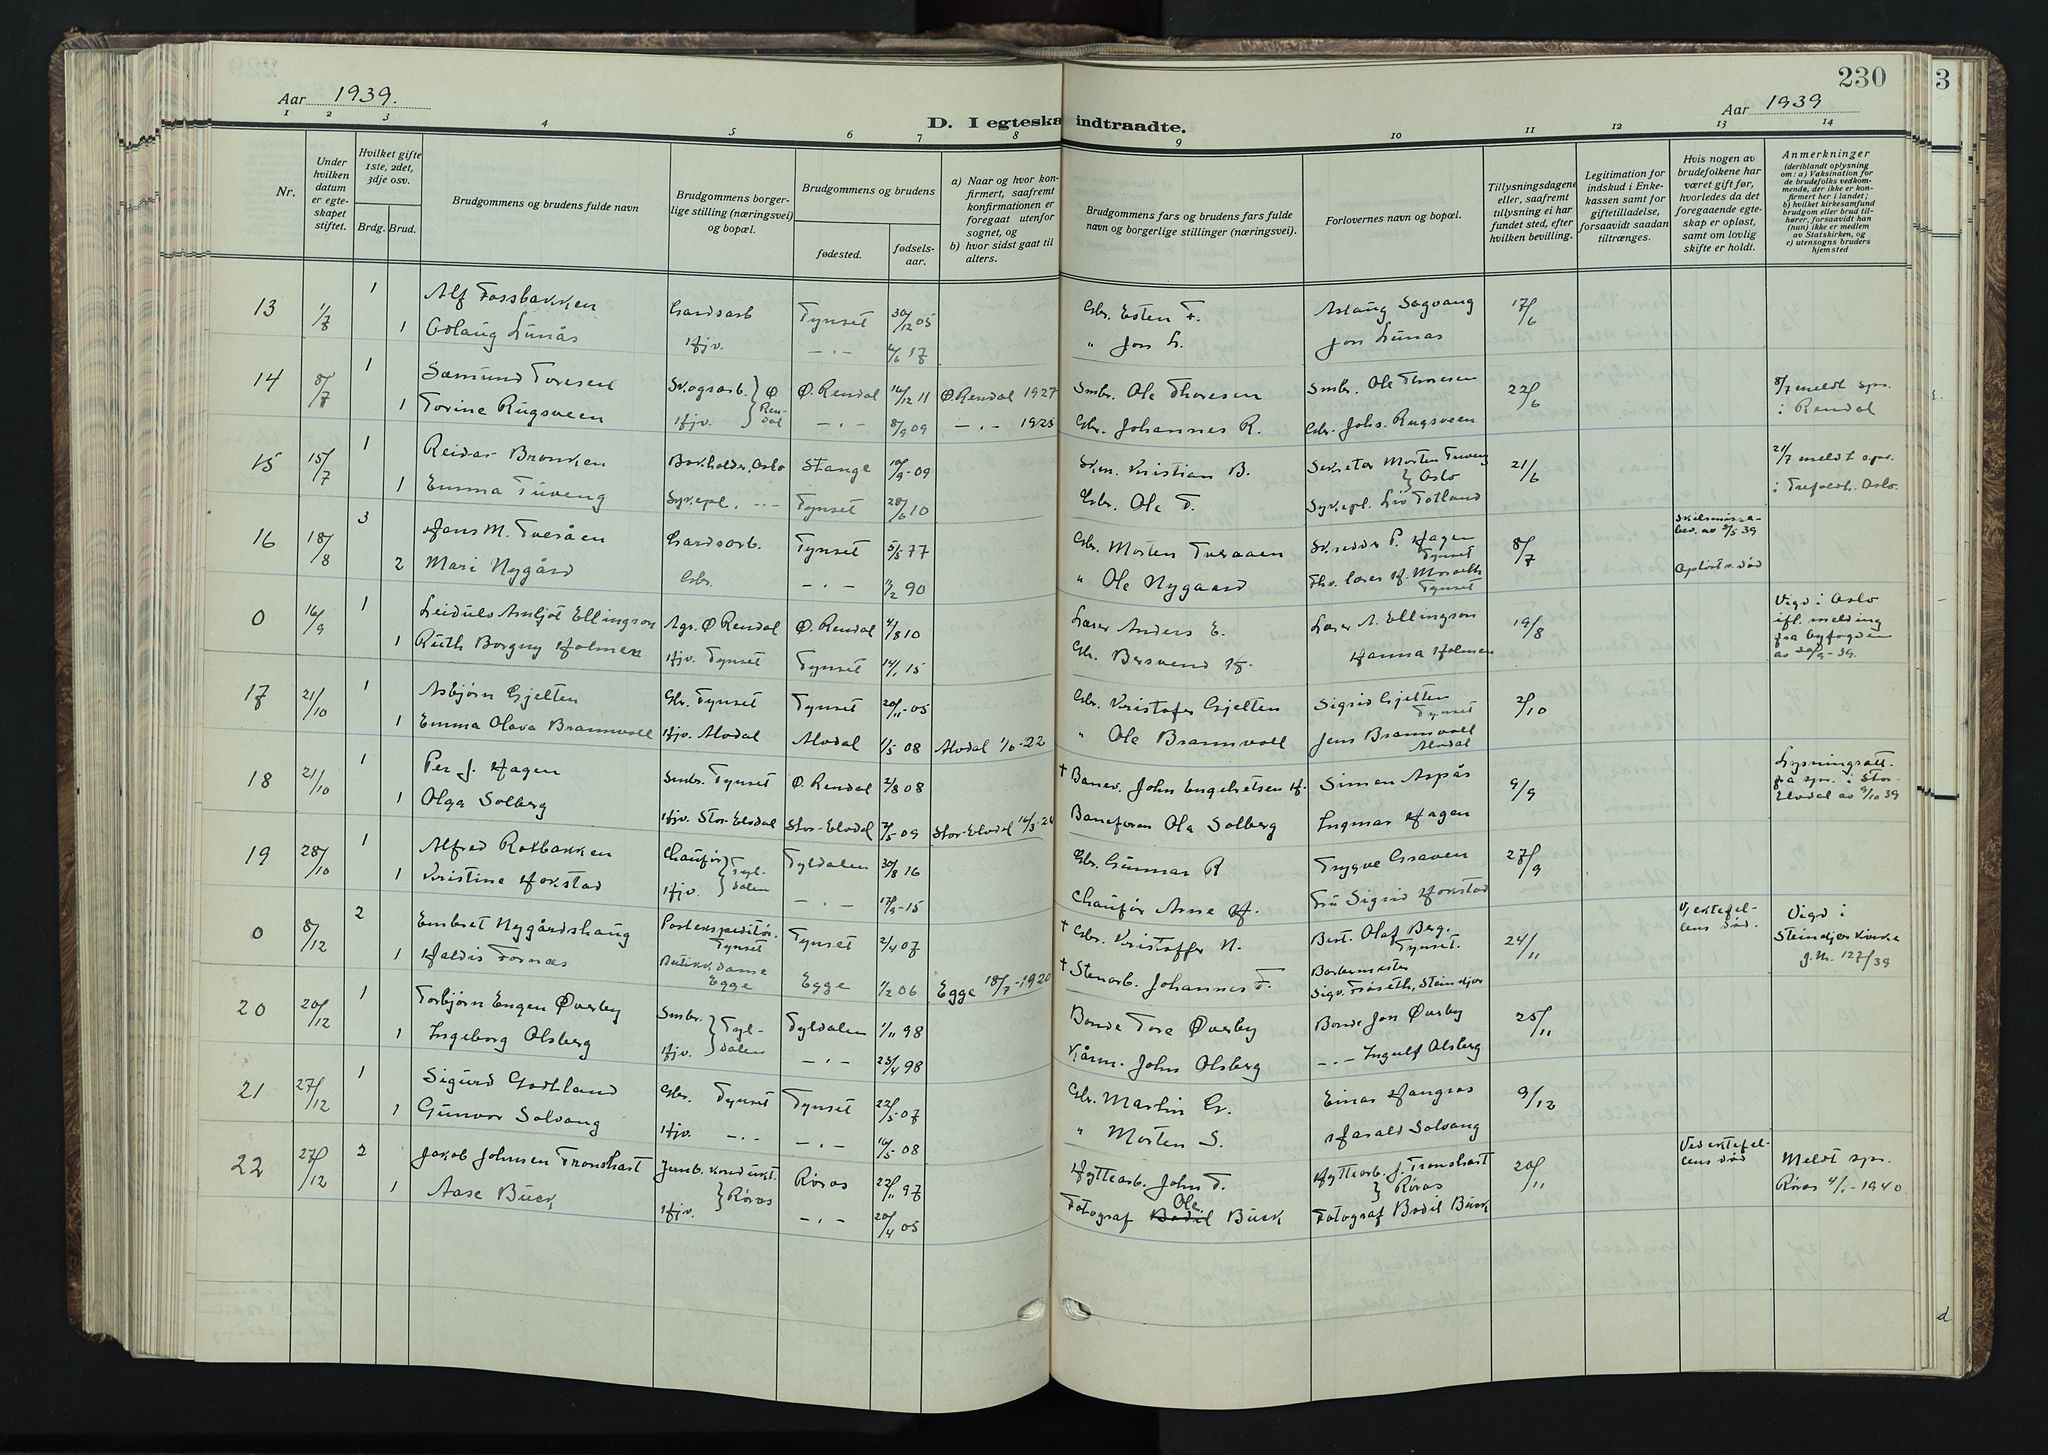 230
3
Aar 1939.
Aar 1939
D. I egteska indtraadte.
1 2 3 4 5 6 7 8 9 10 11 12 13 14
Nr.
Under hvilken datum er egteskapet stiftet.
Hvilket gifte 1ste, 2det, 3dje osv.
Brdg. Brud.
Brudgommens og brudens fulde navn
Brudgommens borgerlige stilling (næringsvei) og bopæl.
Brudgommens og brudens
fødested.
fødselsaar.
a) Naar og hvor konfirmert, saafremt konfirmationen er foregaat utenfor sognet, og
b) hvor sidst gaat til alters.
Brudgommens fars og brudens fars fulde navn og borgerlige stillinger (næringsvei).
Forlovernes navn og bopæl.
Tillysningsdagene eller, saafremt tillysning ei har fundet sted, efter hvilken bevilling.
Legitimation for indskud i Enkekassen samt for giftetilladelse, forsaavidt saadan tiltrænges.
Hvis nogen av brudefolkene har været gift før, hvorledes da det foregaaende egteskap er opløst, samt om lovlig skifte er holdt.
Anmerkninger (deriblandt oplysning om: a) Vaksination for de brudefolks vedkommende, der ikke er konfirmert her i landet; b) hvilket kirkesamfund brudgom eller brud tilhører, forsaavidt han (hun) ikke er medlem av Statskirken, og c) utensogns bruders hjemsted
13 1/7 1 Alf Fossbakken Gardsarb Tynset 30/12 05 Gbr. Esten F. Aslaug Sagvang 17/6
1 Odlaug Lunås Hjv. —"— 4/6 17 " Jon L. Jon Lunås
14 8/7 1 Sæmund Toresen Skogsarb. Ø Rendal Ø. Rendal 16/12 11 Ø. Rendal 1927 Smbr. Ole Thoresen Smbr. Ole Thoresen 22/6 8/7 meldt spr.
1 Torine Rugsveen Hjv. —"— 8/9 09 —"— 1925 Gbr. Johannes R. Gbr. Johs. Rugsveen i Rendal
15 15/7 1 Reidar Bronken Bokholder, Oslo Stange 10/9-09 Kristian B. Sekretær Morten Tuveng Oslo 21/6 21/7 meldt spr.
1 Emma Tuveng Sykepl. —"— Tynset 28/6 10 Gbr. Ole T. Sykepl. Liv Totland i Trefoldh. Oslo.
16 18/8 3 Hans M. Tveråen Gardsarb. Tynset 5/5 77 Gbr. Morten Tveraaen Skredder P. Hagen Tynset 8/7 Skilsmisse-bev. av 3/5 39
2 Mari Nygård Gbr. —"— 11/2 90 " Ole Nygaard Fhv. lærer H. Moseth Tynset Opløst v. død
0 16/9 1 Leidulv Arnljot Ellingson Agr. Ø Rendal Ø. Rendal 4/8 10 Lærer Anders E. Lærer A. Ellingson 19/8 Vigd i Oslo
1 Ruth Borgny Holmen Hjv. Tynset Tynset 14/1 15 Gbr. Bersvend H. Hanna Holmen ifl. melding
fra byfogden
av 20/9-39.
17 21/10 1 Asbjørn Gjelten Gbr. Tynset Tynset 20/11-05 Gbr. Kristofer Gjelten Sigrid Gjelten Tynset 2/10
1 Emma Olava Bramvoll Hjv. Alvdal Alvdal 1/5 08 Alvdal 1/6-22 " Ole Bramvoll Jens Bramvoll Alvdal
18 21/10 1 Per J. Hagen Smbr. Tynset Ø. Rendal 2/8 08 † Banev. John Engebretsen H. Simen Aspås 9/9 Lysningsatt.
1 Olga Solberg Hjv. Stor-Elvdal Stor-Elvdal 7/5-09 Stor-Elvdal Baneform Ola Solberg Ingmar Hagen fra spr. i Stor-
Elvdal av 9/10 39
19 28/10 1 Alfred Rotbakken Chaufør Tyldalen Tyldalen 30/8 16 Gbr. Gunnar R Trygve Graven 27/9
1 Kristine Hokstad Hjv. —"— 17/9-15 Chaufør Arne H. Fru Sigrid Hokstad
0 8/12 2 Embret Nygårdshaug Postekspeditør Tynset Tynset 2/4 07 † Gbr. Kristoffer N. Best. Olaf Berg. Tynset. 24/11 V/ektefel-lens død. Vigd i
1 Haldis Fornæs Butikkdame Egge Egge 1/2 06 Egge 18/7-1920 † Stenarb. Johannes F. Barbermester Sigv. Frøseth, Steinkjer Steinkjer kirke
J. Nr. 127/39
20 20/12 1 Torbjørn Engen Øverby Smbr. Tyldalen Tyldalen 1/11 98 Bonde Tore Øverby Bonde Jon Øverby 25/11
1 Ingeborg Olsberg Hjv. —"— 23/4 98 Kårm. John Olsberg —"— Ingulf Olsberg
21 27/12 1 Sigurd Godtland Gbr. Tynset Tynset 22/5-07 Gbr. Martin G. Einar Hangrås 9/12
1 Gunvor Solvang Hjv. —"— —"— 16/5 08 " Morten S. Harald Solvang
22 27/12 2 Jakob Johnsen Tronshart Jernb. kondukt. Røros Røros 22/11 97 Hyttearb. John T. Hyttearb. J. Tronshart Røros 20/11 Ved ektefel-lens død Meldt spr.
1 Aase Buck Hjv. —"— 20/4 05 Fotograf Ole Buck Fotograf Bodil Buck Røros 4/1-1940